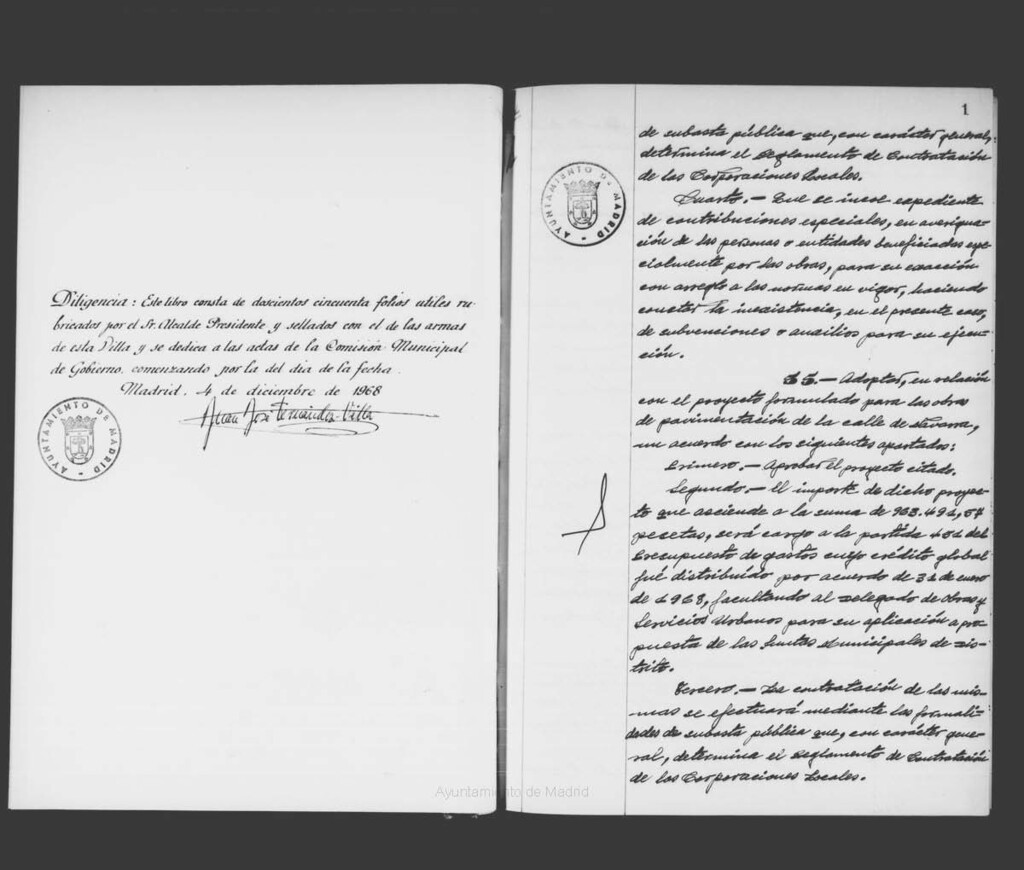 Diligencia: Este libro consta de doscientos cincuenta folios utiles ru-
bricados por el Sr. Alcalde Presidente y sellados con el de las armas
de esta Villa y se dedica a las actas de la Comisión Municipal
de Gobierno, comenzando por la del dia de la fecha.
Madrid, 4 de diciembre de 1968
Juan José Fernández-Villa
AYUNTAMIENTO DE MADRID
1
AYUNTAMIENTO DE MADRID
de subasta pública que, con carácter general,
determina el Reglamento de Contratación
de las Corporaciones Locales.
Cuarto.- Que se incoe expediente
de contribuciones especiales, en averigua-
ción de las personas o entidades beneficiadas espe-
cialmente por las obras, para su exacción
con arreglo a las normas en vigor, haciendo
constar la inexistencia, en el presente caso,
de subvenciones o auxilios para su ejecu-
ción.
55.- Adoptar, en relación
con el proyecto formulado para las obras
de pavimentación de la calle de Navarra,
un acuerdo con los siguientes apartados:
Primero.- Aprobar el proyecto citado.
Segundo.- El importe de dicho proyec-
to que asciende a la suma de
pesetas, será cargo a la partida 401 del
Presupuesto de gastos cuyo crédito global
fué distribuído por acuerdo de 31 de enero
de 1968, facultando al Delegado de Obras y
Servicios Urbanos para su aplicación a pro-
puesta de las Juntas Municipales de Dis-
trito.
Tercero.- La contratación de las mis-
mas se efectuará mediante las formali-
dades de subasta pública que, con carácter gene-
ral, determina el Reglamento de Contratación
de las Corporaciones Locales.
Ayuntamiento de Madrid